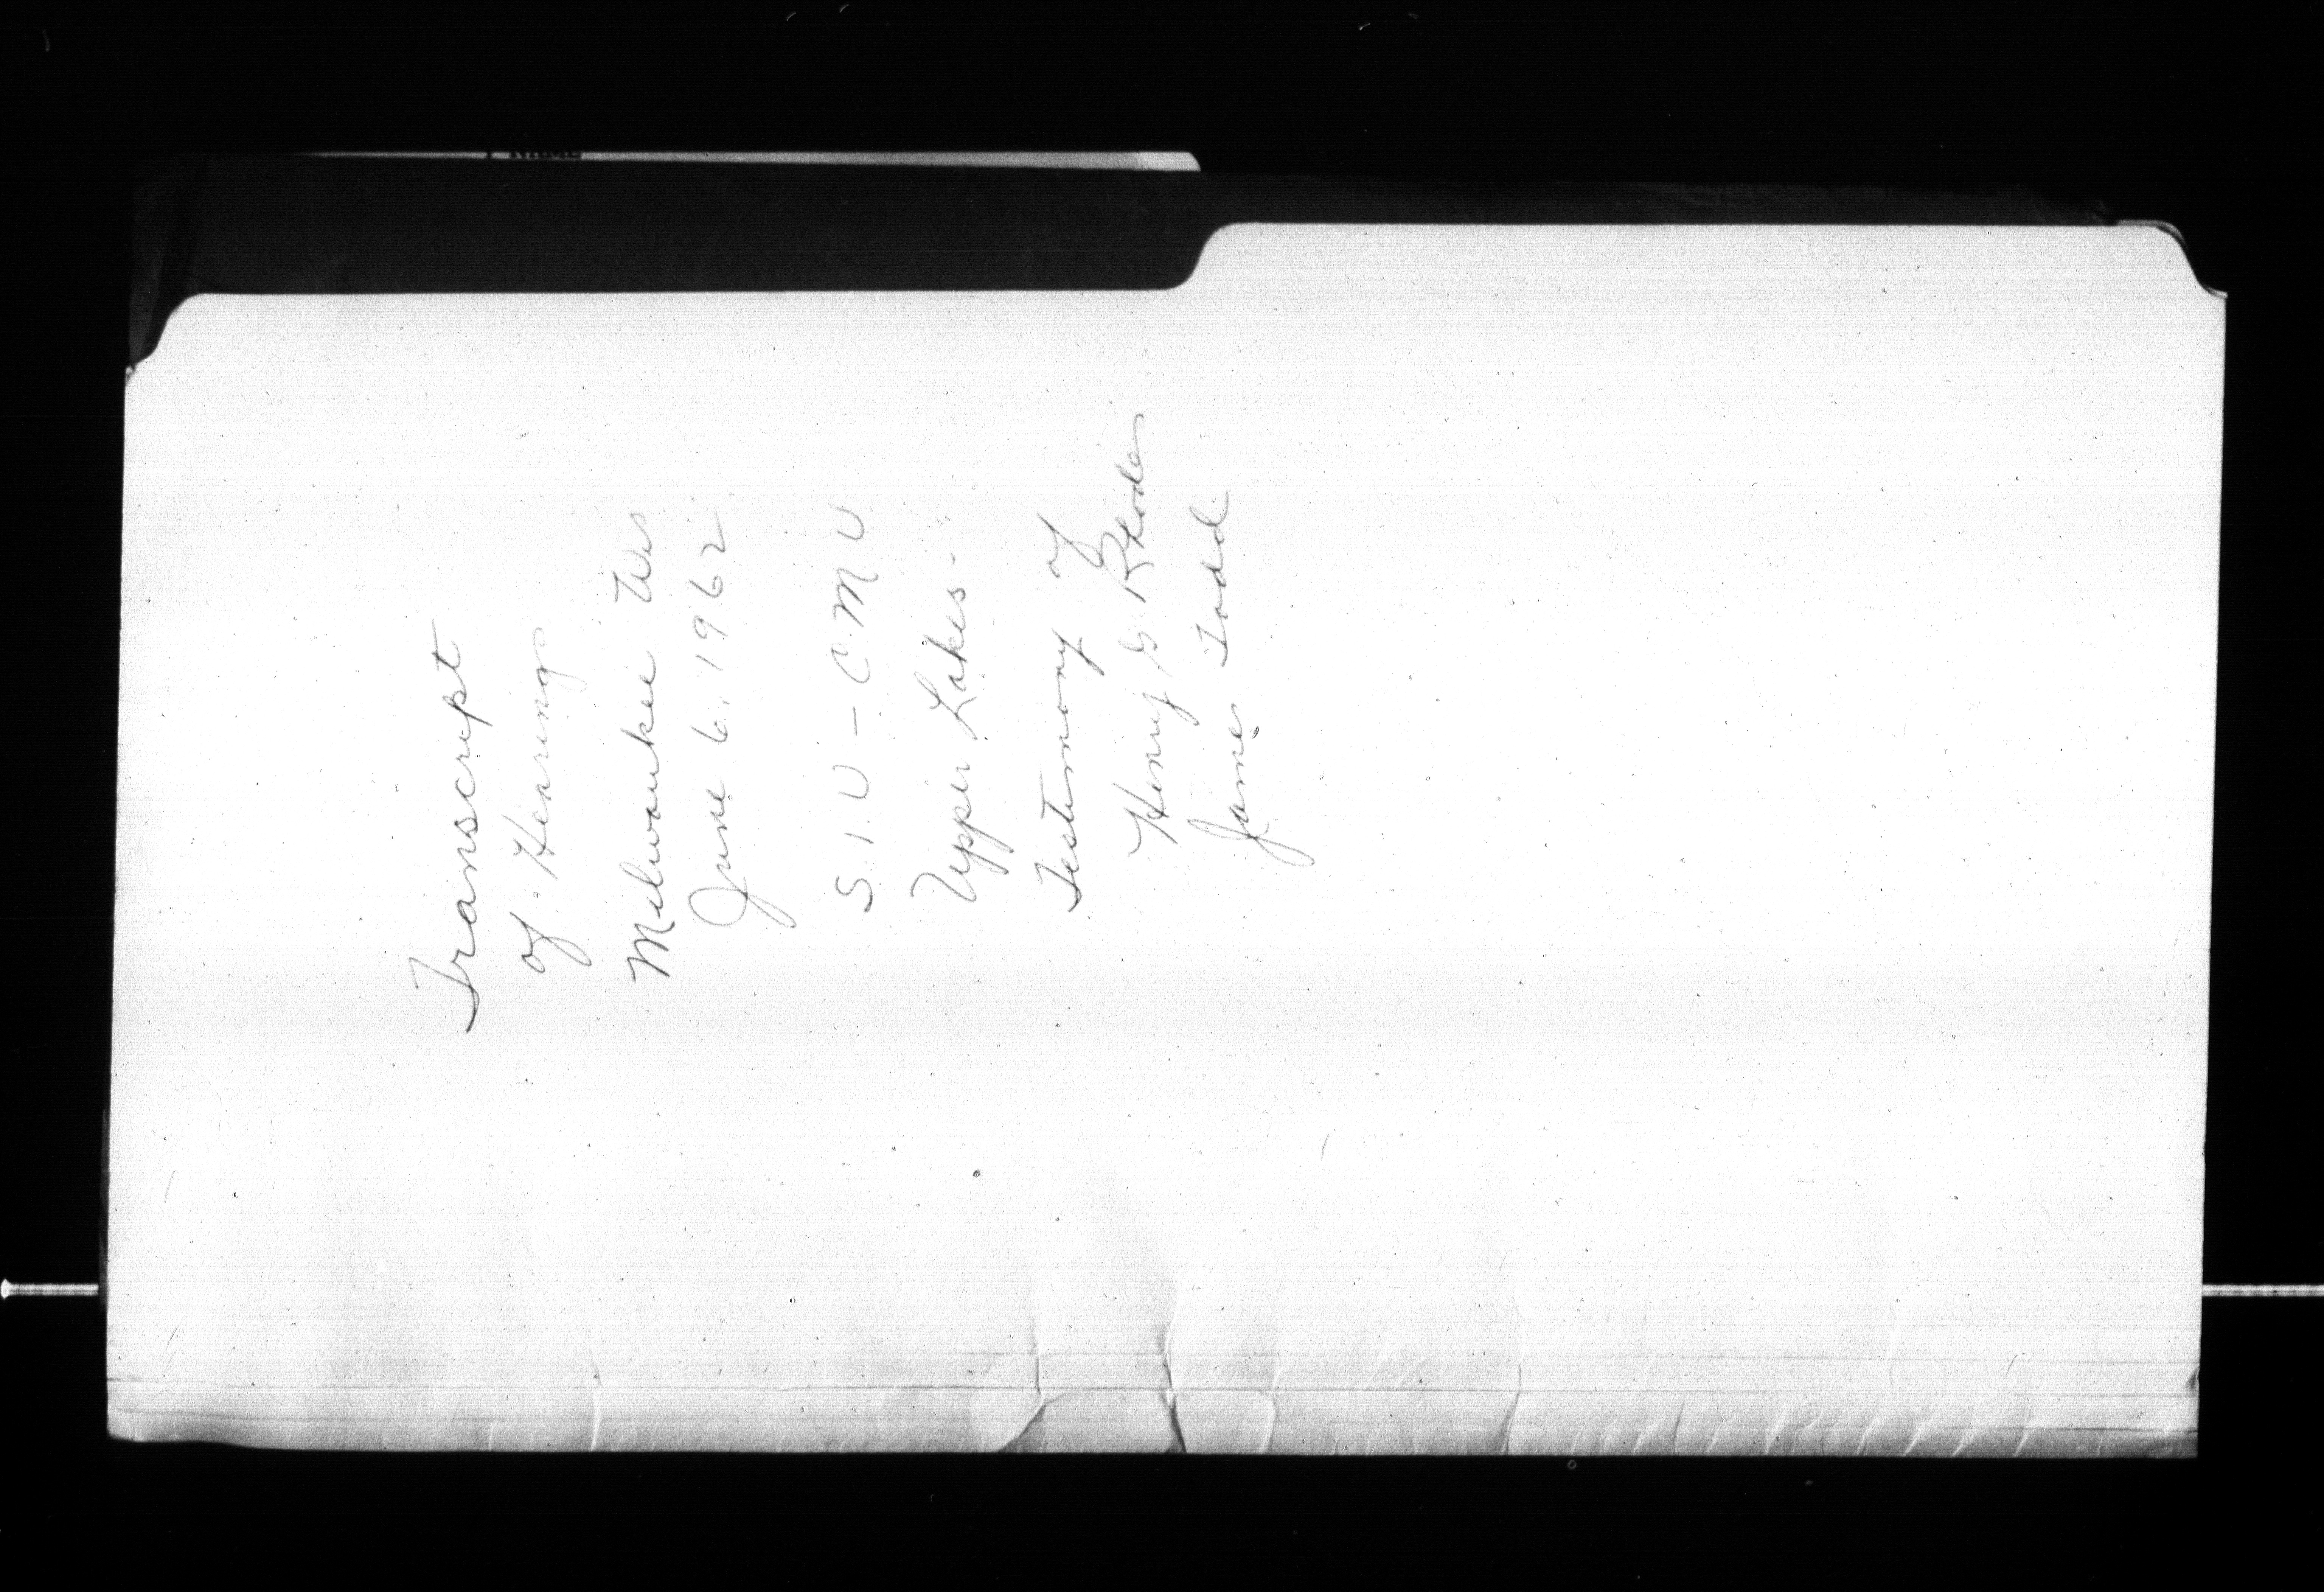 Transcript
of Hearing
Milwaukee Wis
June 6, 1962
S.I.U - C.M.U
Upper Lakes.
Testimony of
Henry G Rhodes
James Todd